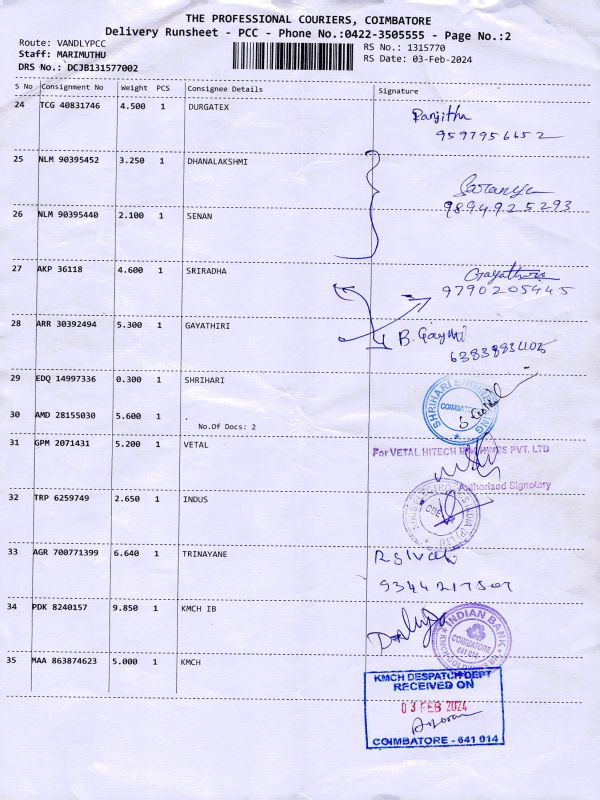 THE PROFESSIONAL COURIERS, COIMBATORE
Delivery Runsheet - PCC - Phone No.:0422-3505555 - Page No.:2
Route: VANDLYPCC
RS No.: 1315770
Staff: MARIMUTHU
RS Date: 03-Feb-2024
DRS No.: DCJB131577002
S No Consignment No Weight PCS Consignee Details Signature
24 TCG 40831746 4.500 1 DURGATEX
Ranjitha
9597956652
25 NLM 90395452 3.250 1 DHANALAKSHMI
Saranya
9894925293
26 NLM 90395440 2.100 1 SENAN
27 AKP 36118 4.600 1 SRIRADHA
Gayathiri
9790205445
28 ARR 30392494 5.300 1 GAYATHIRI
B. Gaythri
29 EDQ 14997336 0.300 1 SHRIHARI
SHRIHARI ENGINEERING
COIMBATORE
30 AMD 28155030 5.600 1 .
No.Of Docs: 2
31 GPM 2071431 5.200 1 VETAL
For VETAL HITECH MACHINES PVT. LTD
Authorised Signatory
32 TRP 6259749 2.650 1 INDUS
33 AGR 700771399 6.640 1 TRINAYANE
9344217507
34 PDK 8240157 9.850 1 KMCH IB
INDIAN BANK
COIMBATORE
641 014
35 MAA 863874623 5.000 1 KMCH
KMCH DESPATCH DEPT
RECEIVED ON
03 FEB 2024
COIMBATORE - 641 014